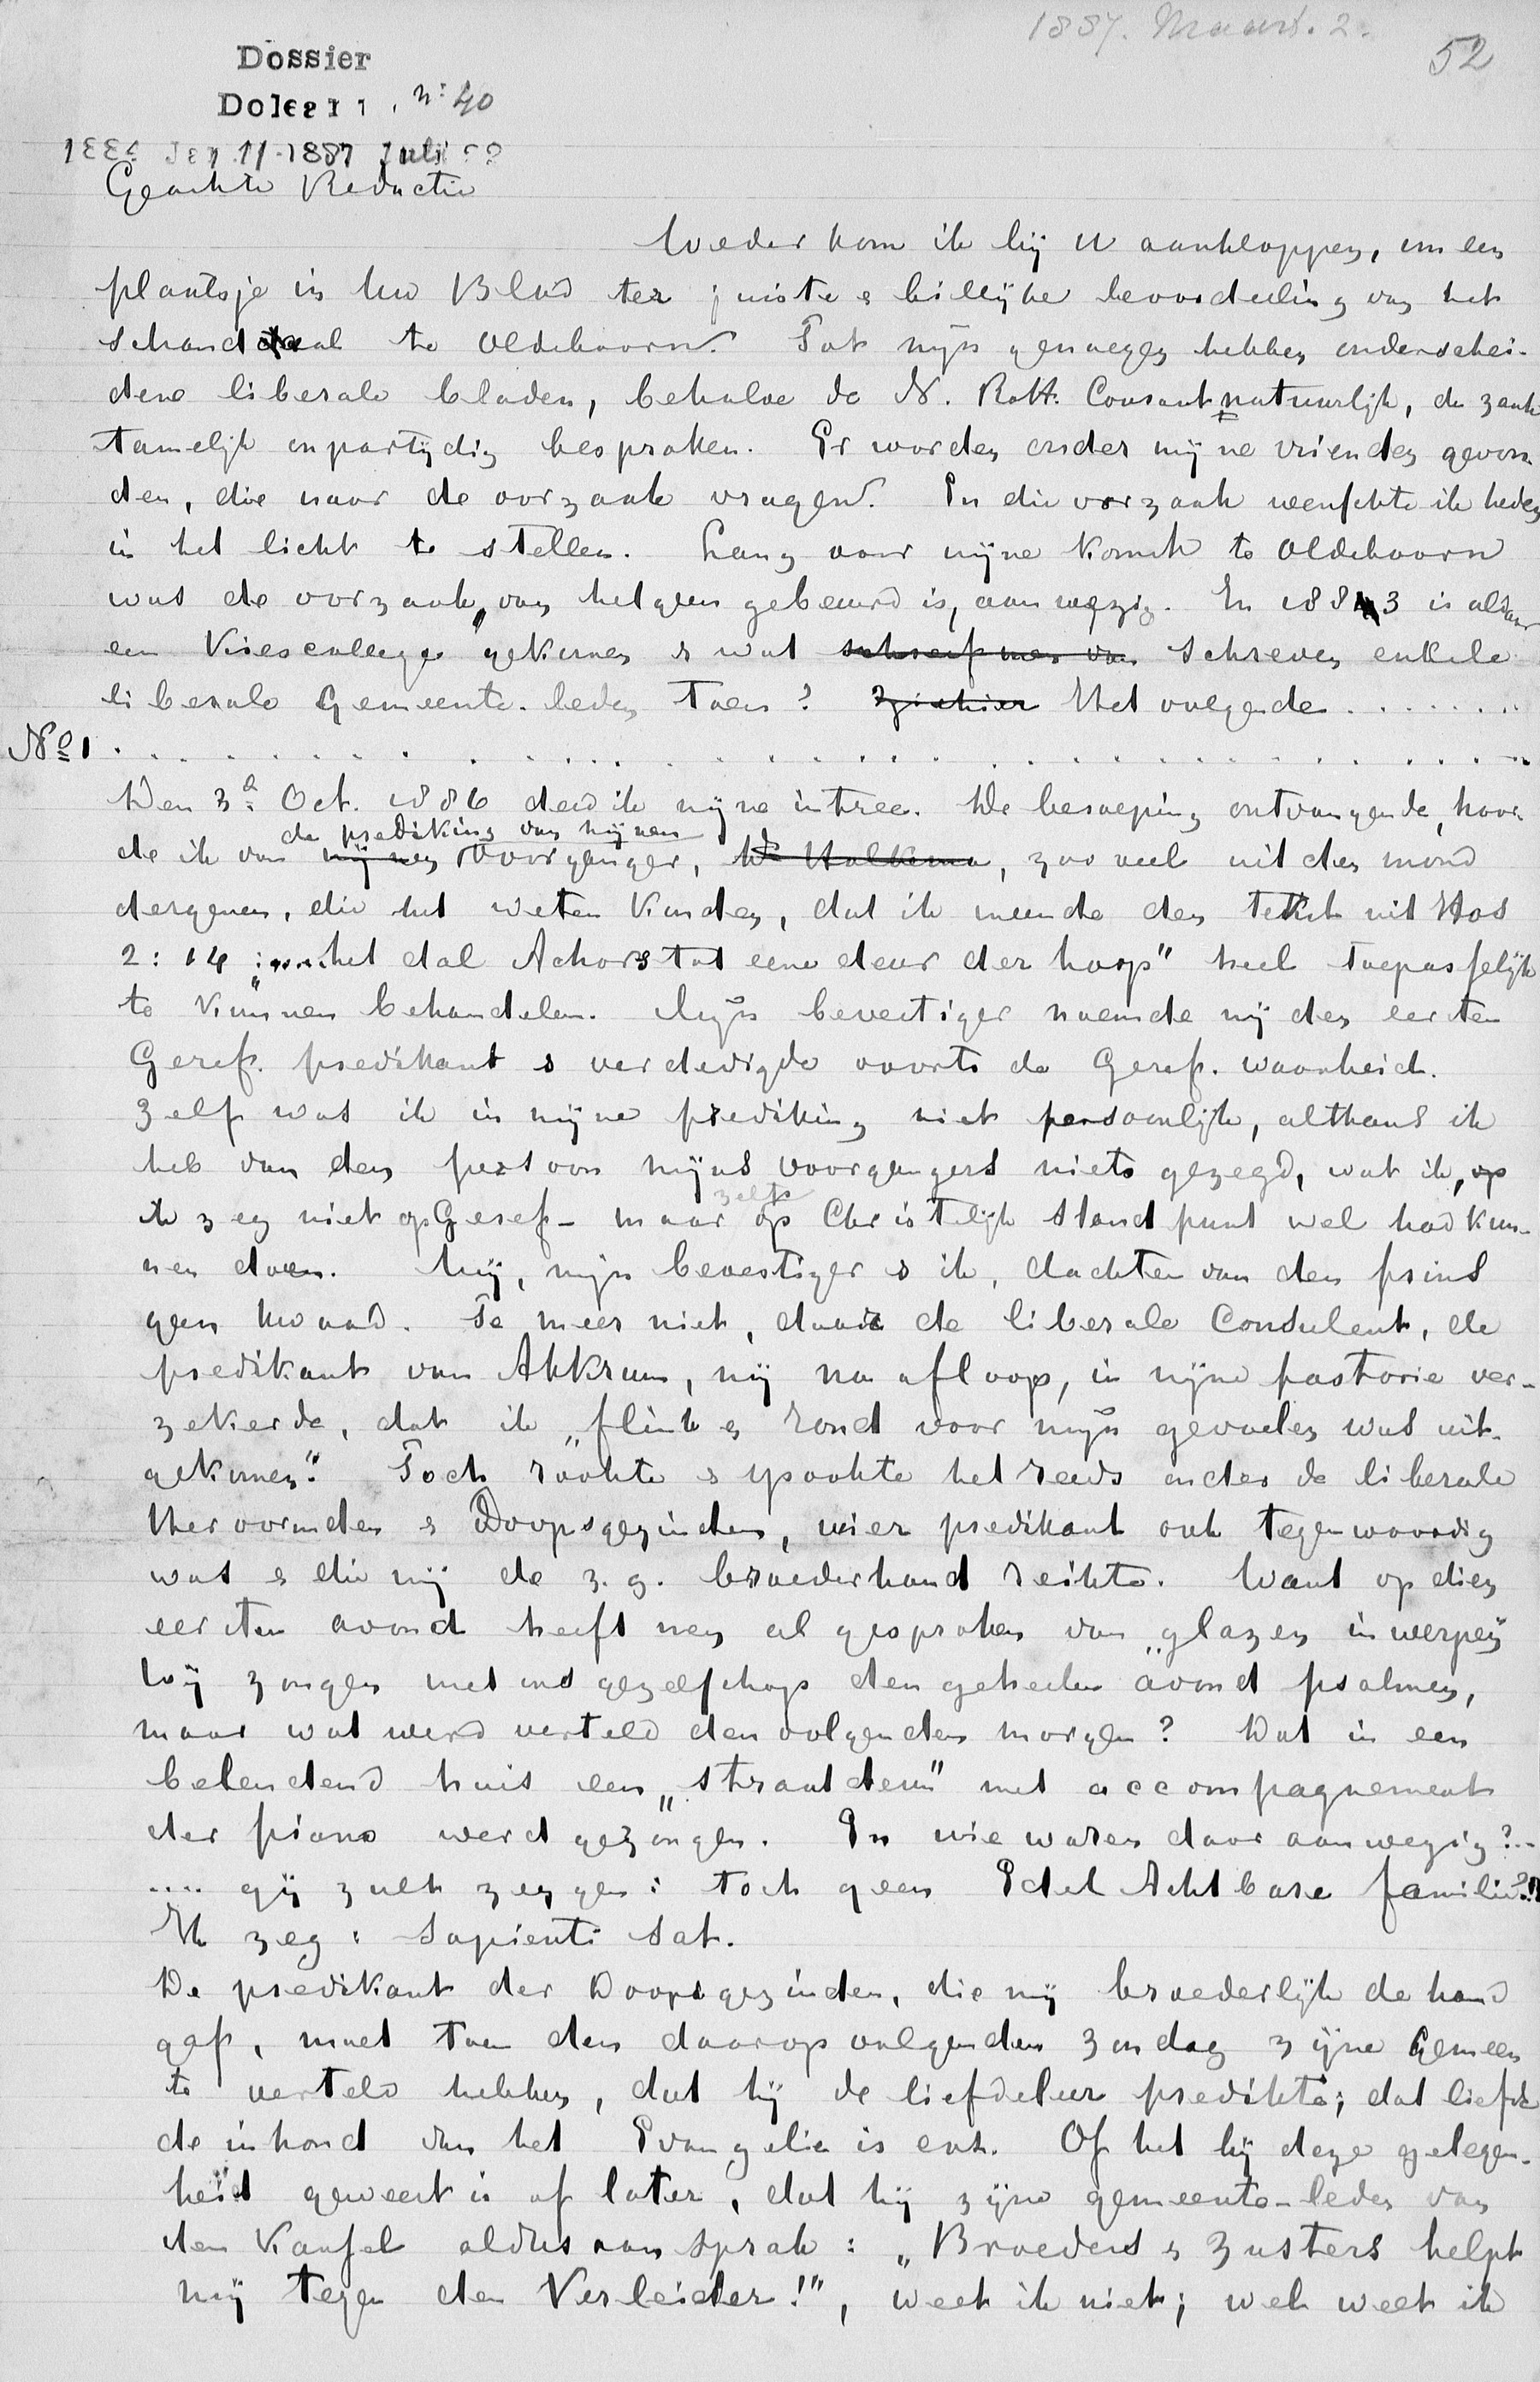 1887. Maart. 2.
52
Dossier
Doleantie. No: 40
1886 Jan 11-1887 Juli 22
Geachte Redactie
Weder kom ik bij U aankloppen, om een
plaatsje in Uw Blad ter juiste & billijke beoordeeling van het
schandaal te Oldeboorn. Tot mijn genoegen hebben onderschei-
dene liberale bladen, behalve de N. Rott. Courant natuurlijk, de zaak
tamelijk onpartijdig besproken. Er worden onder mijne vrienden gevon
den, die naar de oorzaak vragen. En die oorzaak wenschte ik heden
in het licht te stellen. Lang voor mijne komst te Oldeboorn
was de oorzaak, van hetgeen gebeurd is, aanwezig. In 1883 is aldaar
een Kiescollege gekomen & wat schreef men van schreven enkele
liberale Gemeente-leden toen? Ziehier Het volgende . . . . . . .
No 1 . . . . . . . . . . . . . . . . . . . . . . . . . . . . . .
Den 3e Oct. 1886 deed ik mijne intree. De beroeping ontvangende, hoor
de ik van mijnen de prediking van mijnen voorganger, Ds Halkema, zoo veel uit den mond
dergenen, die het weten konden, dat ik meende den tekst uit Hos
2: 14: "het dal Achors tot eene deur der hoop" heel toepasselijk
te kunnen behandelen. Mijn bevestiger noemde mij den eersten
Geref. predikant & verdedigde voorts de Geref. waarheid.
Zelf was ik in mijne prediking niet persoonlijk, althans ik
heb van den persoon mijns voorgangers niets gezegd, wat ik, op
ik zeg niet op Geref- maar zelfs op Christelijk standpunt wel had kun-
nen doen. Wij, mijn bevestiger & ik, dachten van den prins
geen kwaad. Te meer niet, daar de liberale Consulent, de
predikant van Akkrum, mij na afloop, in mijne pastorie ver-
zekerde, dat ik "flink en rond voor mijn gevoelen was uit-
gekomen". Toch rookte & spookte het reeds onder de liberale
Hervormden & Doopsgezinden, wier predikant ook tegenwoordig
was & die mij de z.g. broederhand reikte. Want op dien
eersten avond heeft men al gesproken van "glazen inwerpen"
Wij zongen met ons gezelschap den geheelen avond psalmen,
maar wat werd verteld den volgenden morgen? Dat in een
belendend huis een "straatdeun" met accompagnement
der piano werd gezongen. En wie waren daar aanwezig?...
.... gij zult zeggen: toch geen Edel Achtbare familie?!!
Ik zeg: Sapienti sat.
De predikant der Doopsgezinden, die mij broederlijk de hand
gaf, moet toen den daarop volgenden Zondag zijne Gemeen
te verteld hebben, dat hij de liefdeleer predikte; dat liefde
de inhoud van het Evangelie is enz. Of het bij deze gelegen-
heid geweest is of later, dat hij zijne gemeente-leden van
den Kansel aldus aansprak: "Broeders & Zusters helpt
mij tegen den Verleider!", weet ik niet; wel weet ik